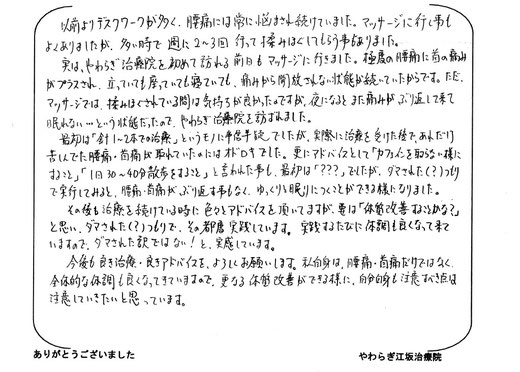 以前よりデスクワークが多く、腰痛には常に悩まされ続けていました。マッサージに行く事も
よくありましたが、多い時で週に2~3回行って揉みほぐしてもらう事もありました。
実は、やわらぎ治療院を初めて訪れる前日もマッサージに行きました。極度の腰痛に首の痛み
がプラスされ、立っていても座っていても寝ていても、痛みから開放されない状態が続いていたからです。ただ、
マッサージでは、揉みほぐされている間は気持ちが良かったのですが、夜になるとまた痛みがぶり返して来て
眠れない…という状態だったので、やわらぎ治療院を訪れました。
最初は「針1~2本での治療」というモノに半信半疑でしたが、実際に治療を受けた後で、あれだけ
苦しんでた腰痛・首痛が取れていたのにはオドロキでした。更にアドバイスとして「カフェインを取らない様に
すること」「1日30~40分散歩をすること」と言われた事も、最初は「???」でしたが、ダマされた(?)つもり
で実行してみると、腰痛・首痛がぶり返す事もなく、ゆっくりと眠りにつくことができる様になりました。
その後も治療を続けている時に色々とアドバイスを頂いてますが、要は「体質改善することかな?」
と思い、ダマされた(?)つもりで、その都度実践しています。実践するたびに体調も良くなって来て
いますので、ダマされた訳ではない!と、実感しています。
今後も良き治療・良きアドバイスを、よろしくお願いします。私自身は、腰痛・首痛だけではなく、
全体的な体調も良くなってきていますので、更なる体質改善ができる様に、自分自身も注意すべき点は
注意していきたいと思っています。
ありがとうございました
やわらぎ江坂治療院